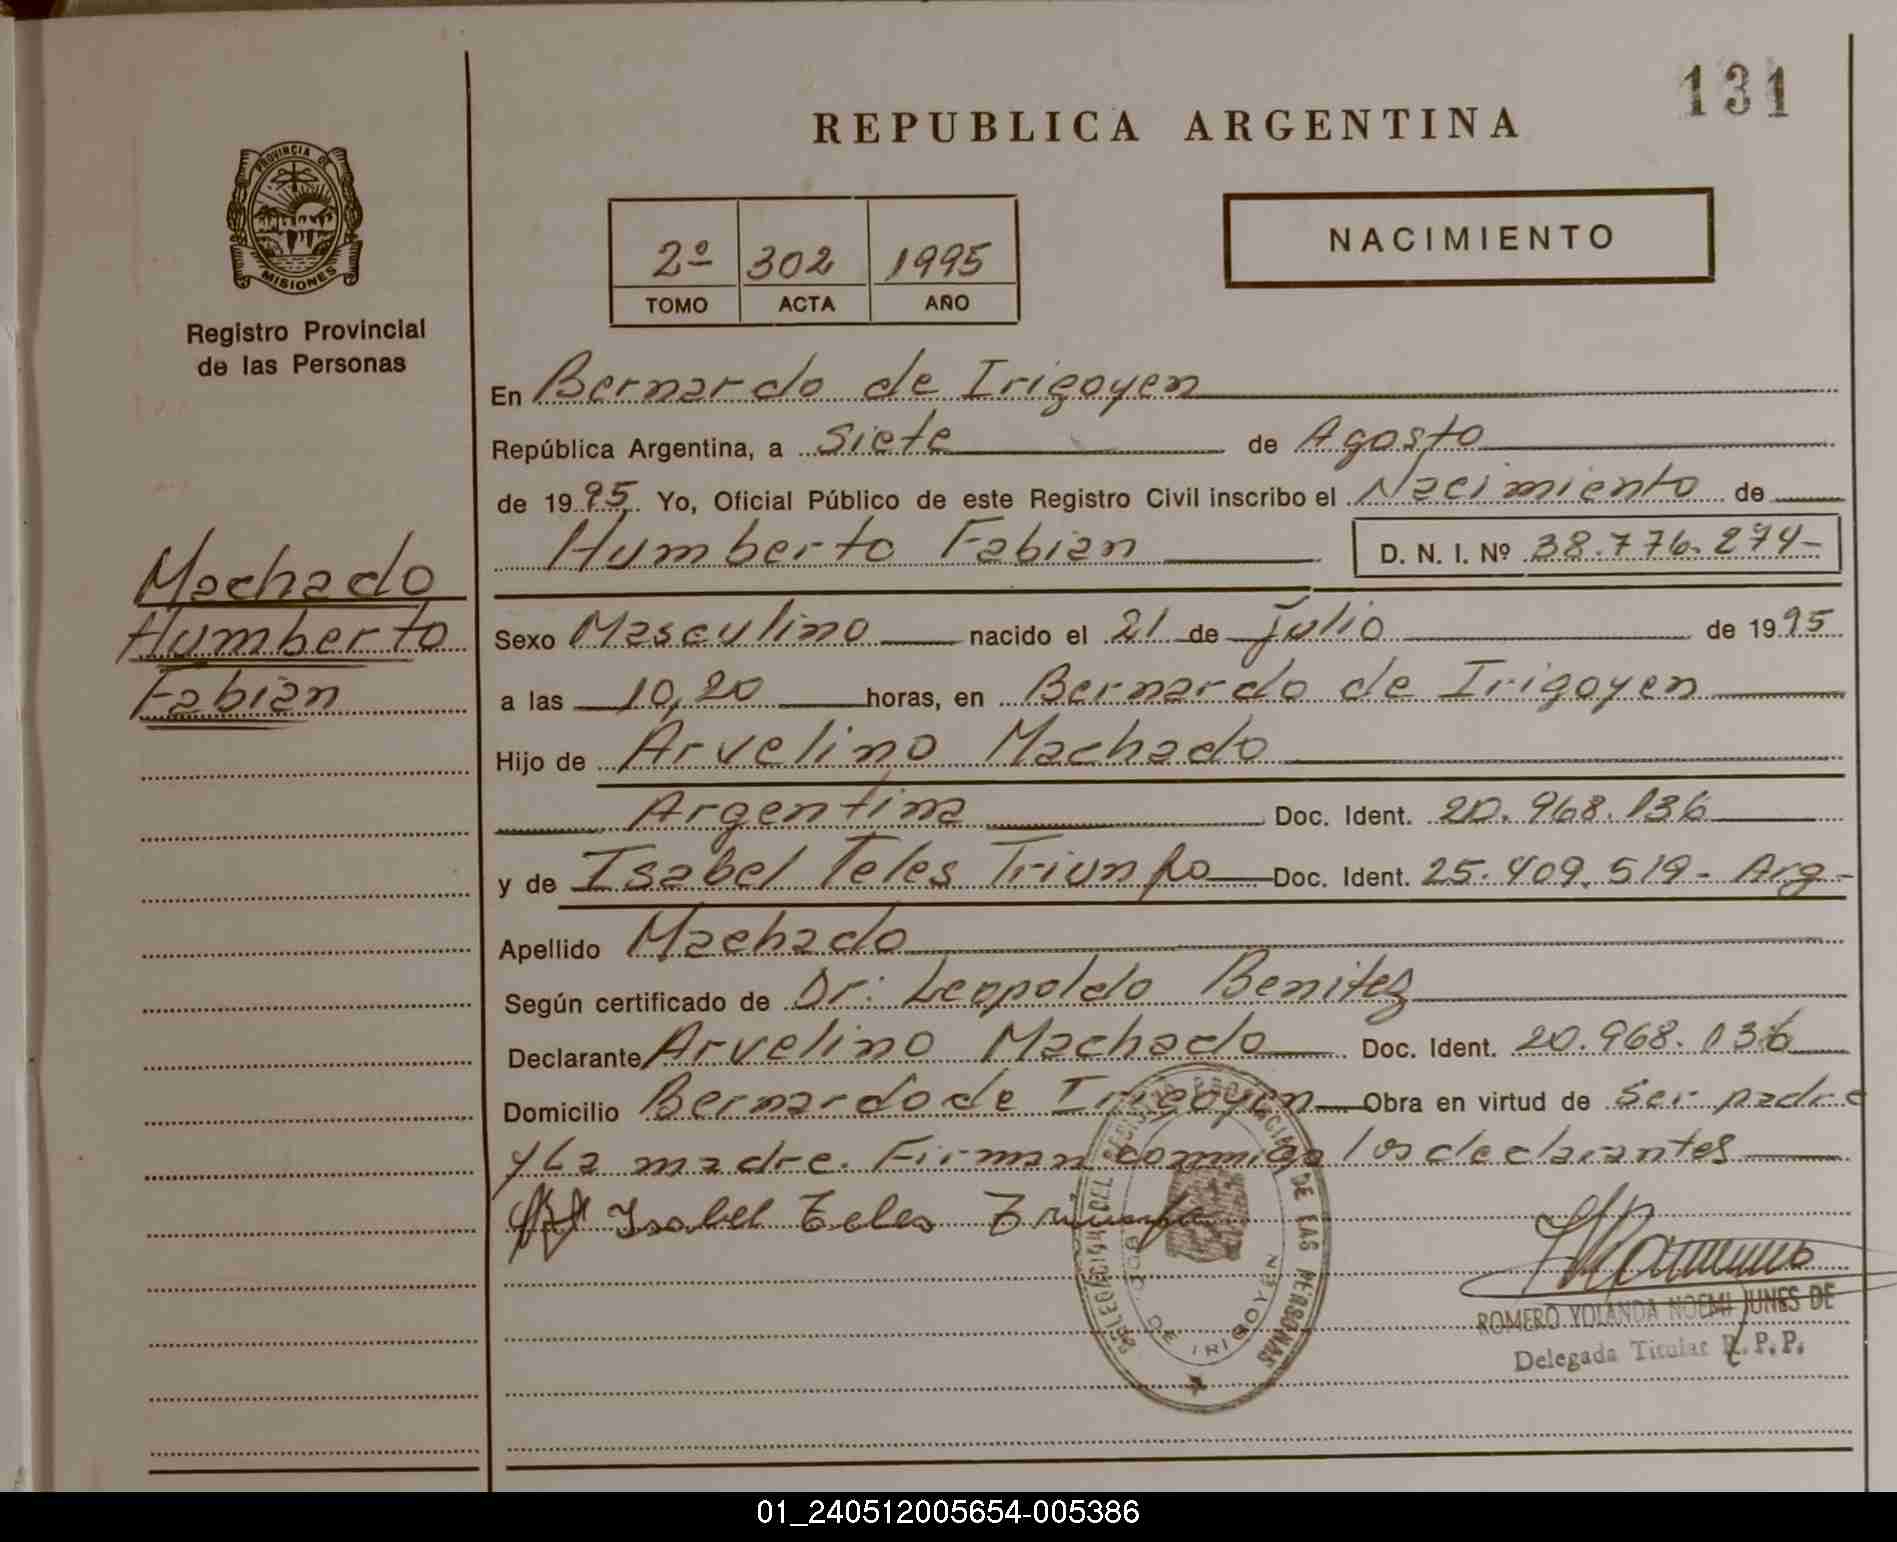 131
REPUBLICA ARGENTINA
PROVINCIA DE
MISIONES
Registro Provincial
de las Personas
2º 302 1995
TOMO ACTA AÑO
NACIMIENTO
En Bernardo de Irigoyen
República Argentina, a Siete de Agosto
de 1995 Yo, Oficial Público de este Registro Civil inscribo el Nacimiento de
Humberto Fabian D. N. I. Nº 38.776.274-
Machado
Humberto
Fabian
Sexo Masculino nacido el 21 de Julio de 1995
a las 10,20 horas, en Bernardo de Irigoyen
Hijo de Arvelino Machado
Argentina Doc. Ident. 20.968.136
y de Isabel Teles Triunfo Doc. Ident. 25.409.519- Arg-
Apellido Machado
Según certificado de Dr. Leopoldo Benitez
Declarante Arvelino Machado Doc. Ident. 20.968.136
Domicilio Bernardo de Irigoyen Obra en virtud de Ser padre
y La madre. Firman conmigo los declarantes
Isabel Teles Triunfo
DELEGACION DEL REGISTRO PROVINCIAL DE LAS PERSONAS
DE IRIGOYEN
ROMERO YOLANDA NOEMI JUNES DE
Delegada Titular R.P.P.
01_240512005654-005386